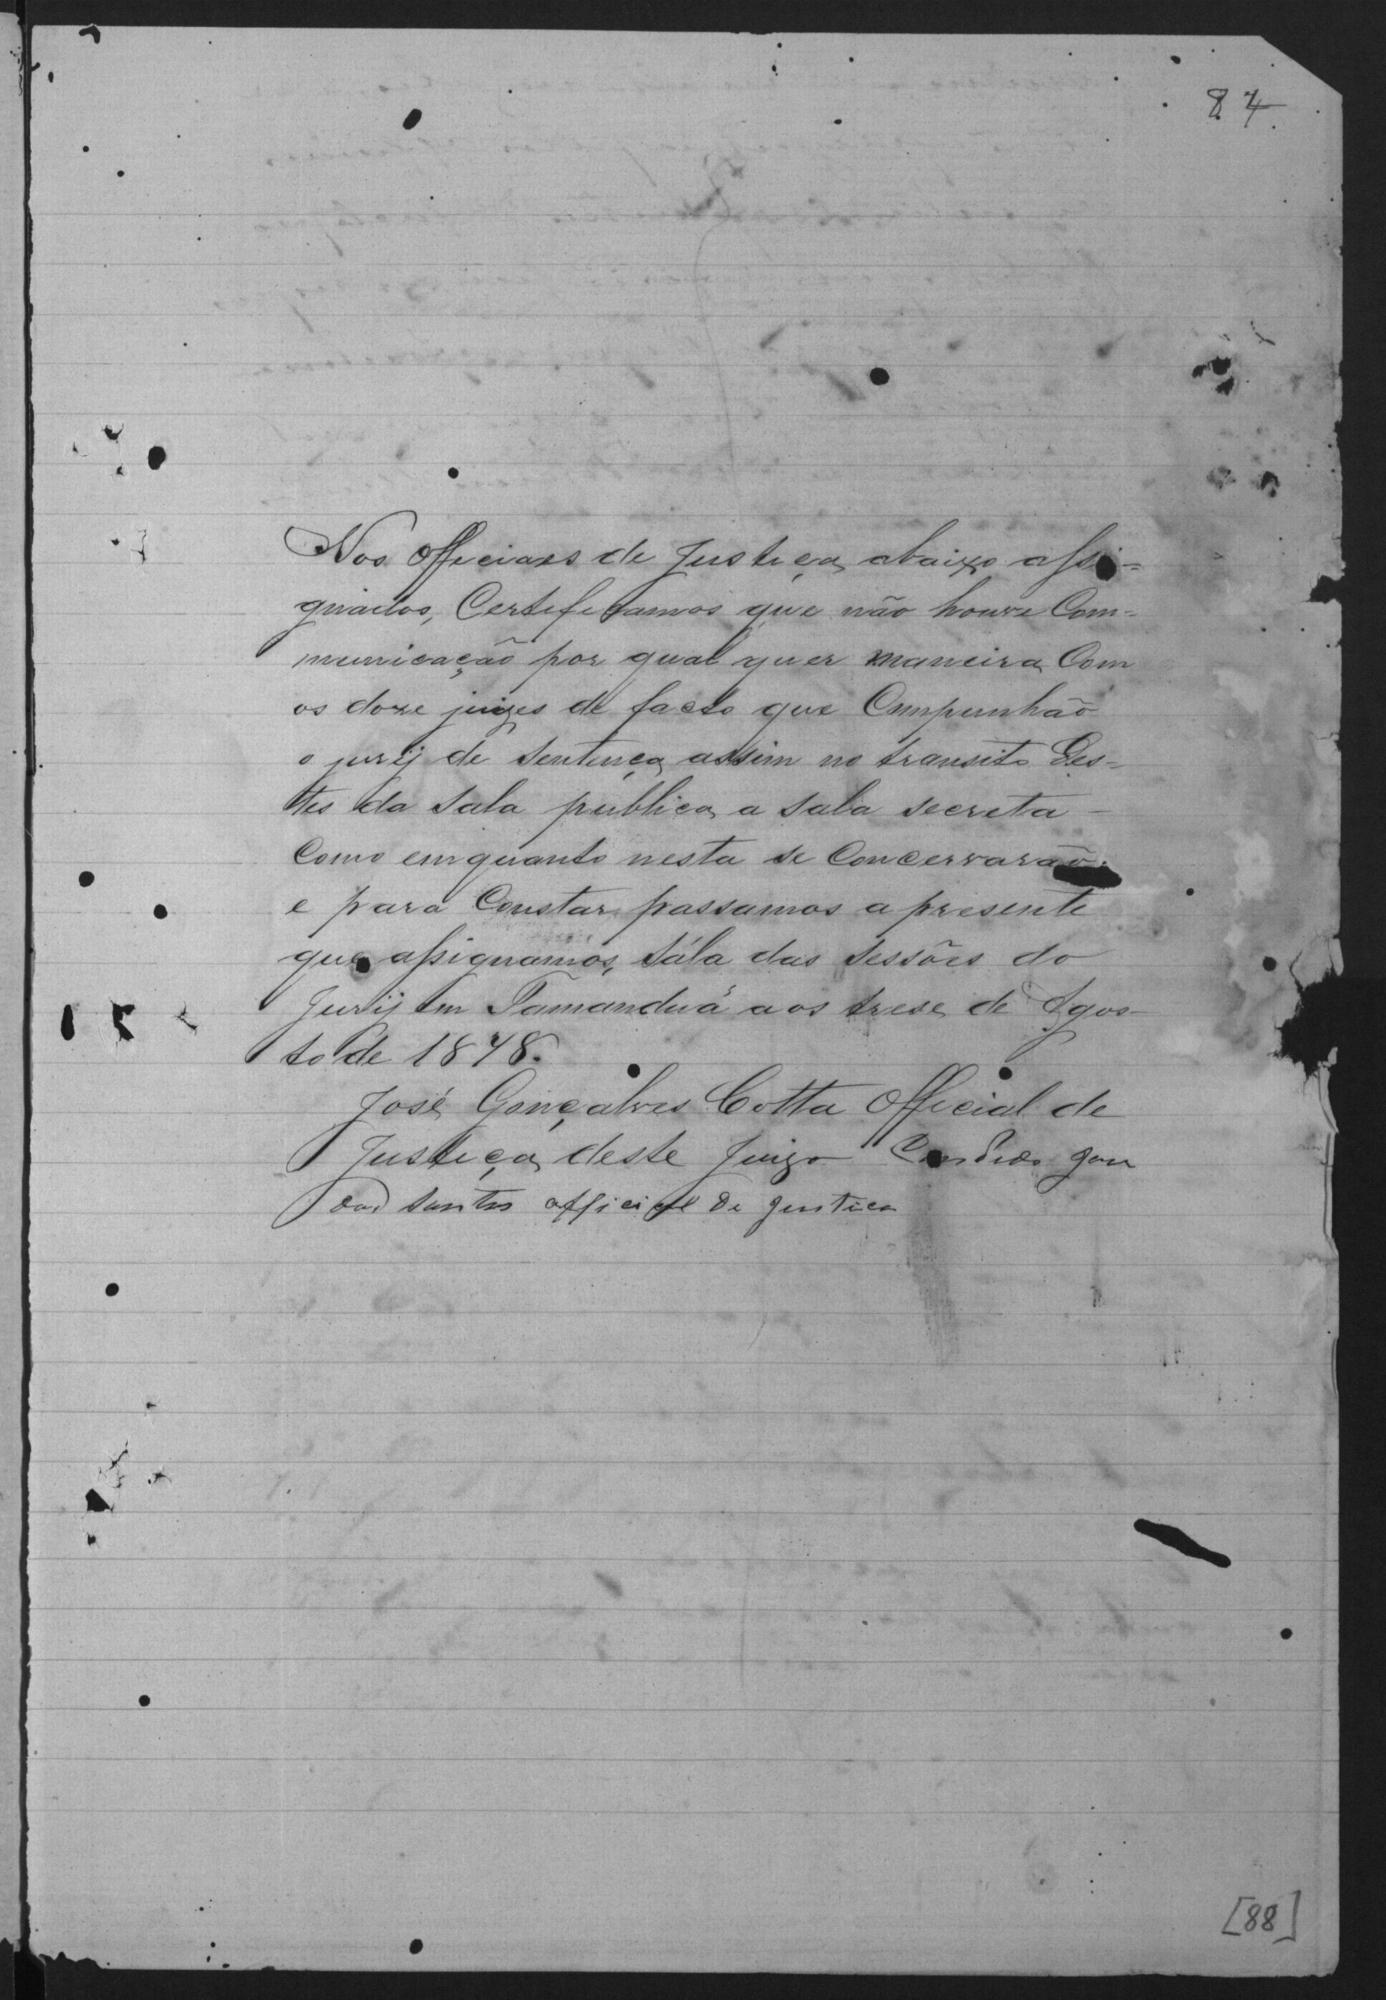 87
Nos Officiaes de Justiça, abaixo assi=
gnados, Certeficamos que não houve Com=
municação por qual quer maneira Com
os doze juizes de facto que Compunhão
o jurij de Sentença, assim no transito Des=
tes da Sala publica, a Sala Secreta -
Como emquanto nesta se Concervarão.
e para Constar, passamos a presente
que assignamos, Sála das Sessões do
Jurij em Tamanduá aos trese de Agos-
to de 1878.
José Gonçalves Cotta Official de
Justiça, deste Juizo Candido
dos Santos official de Justica
[88]